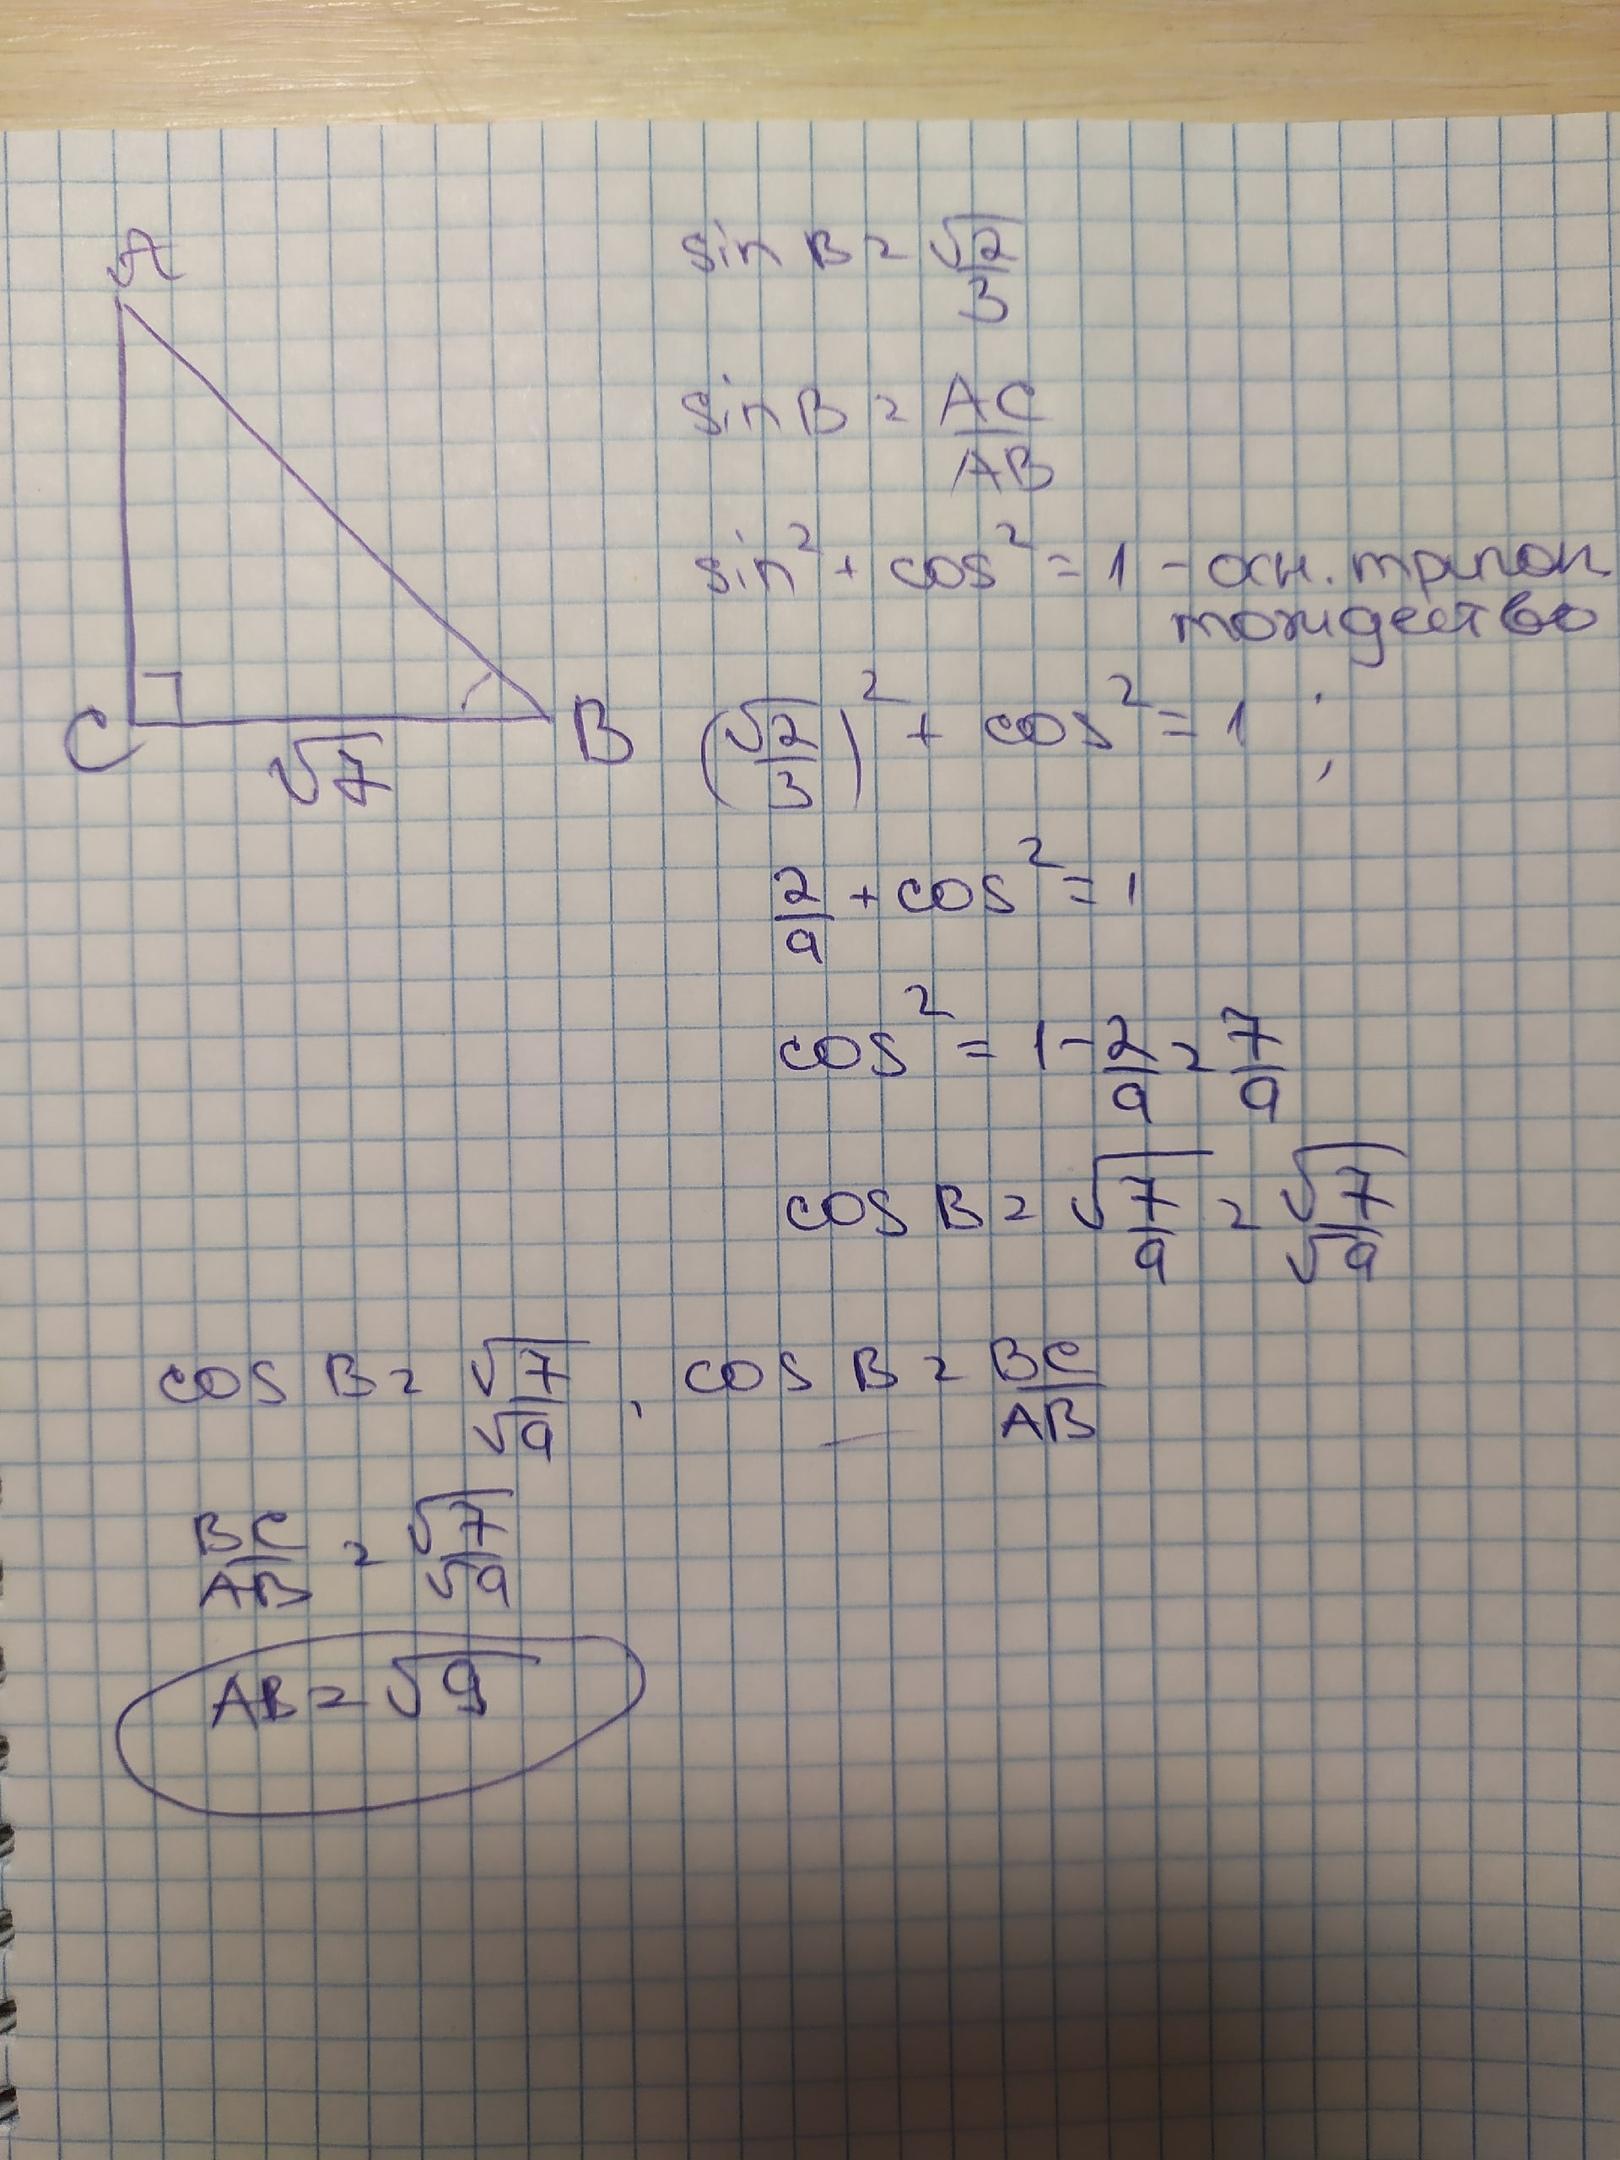 A
C
√7
B
sin B = √2/3
sin B = AC/AB
sin² + cos² = 1 - осн. тригон
тождество
(√2/3)² + cos² = 1 ;
2/9 + cos² = 1
cos² = 1 - 2/9 = 7/9
cos B = √7/9 = √7/√9
cos B = √7/√9 , cos B = BC/AB
BC/AB = √7/√9
AB = √9